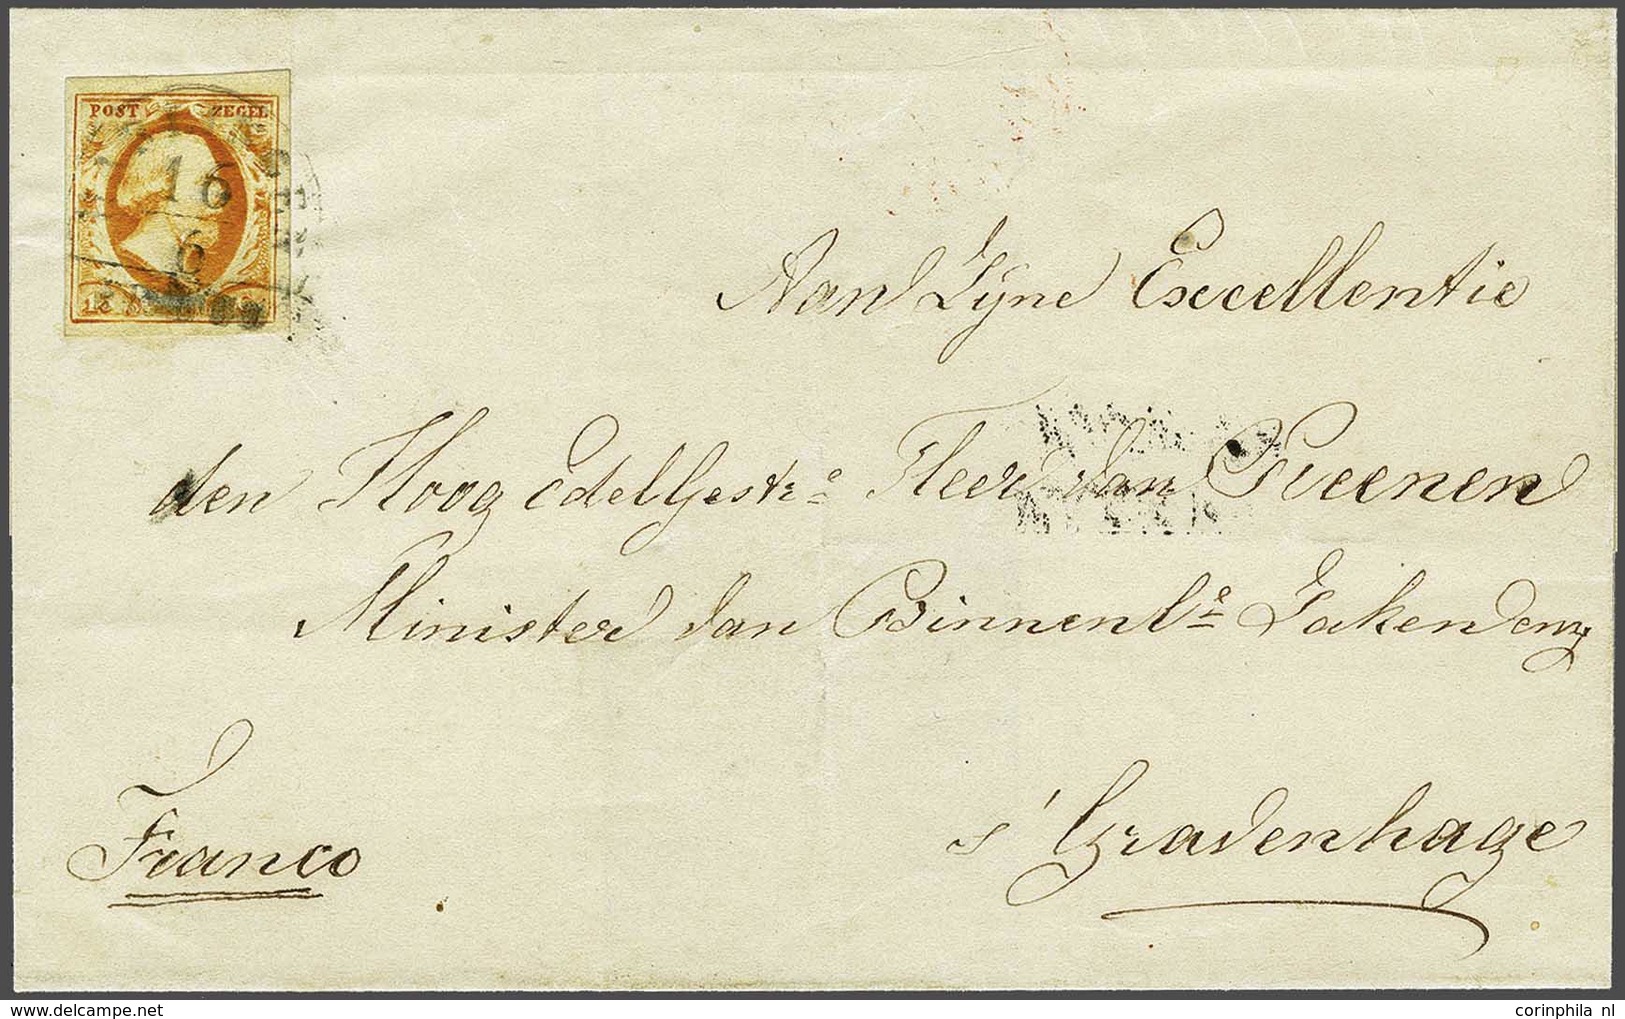 POST ZEGEL
16
6
15
Aan Zyne Excellentie
den Hoog Edel Gestr.e Heer van Reenen
Minister van Binnenl.e Zaken enz
Franco
s' Gravenhage
delcampe.net
corinphila nl